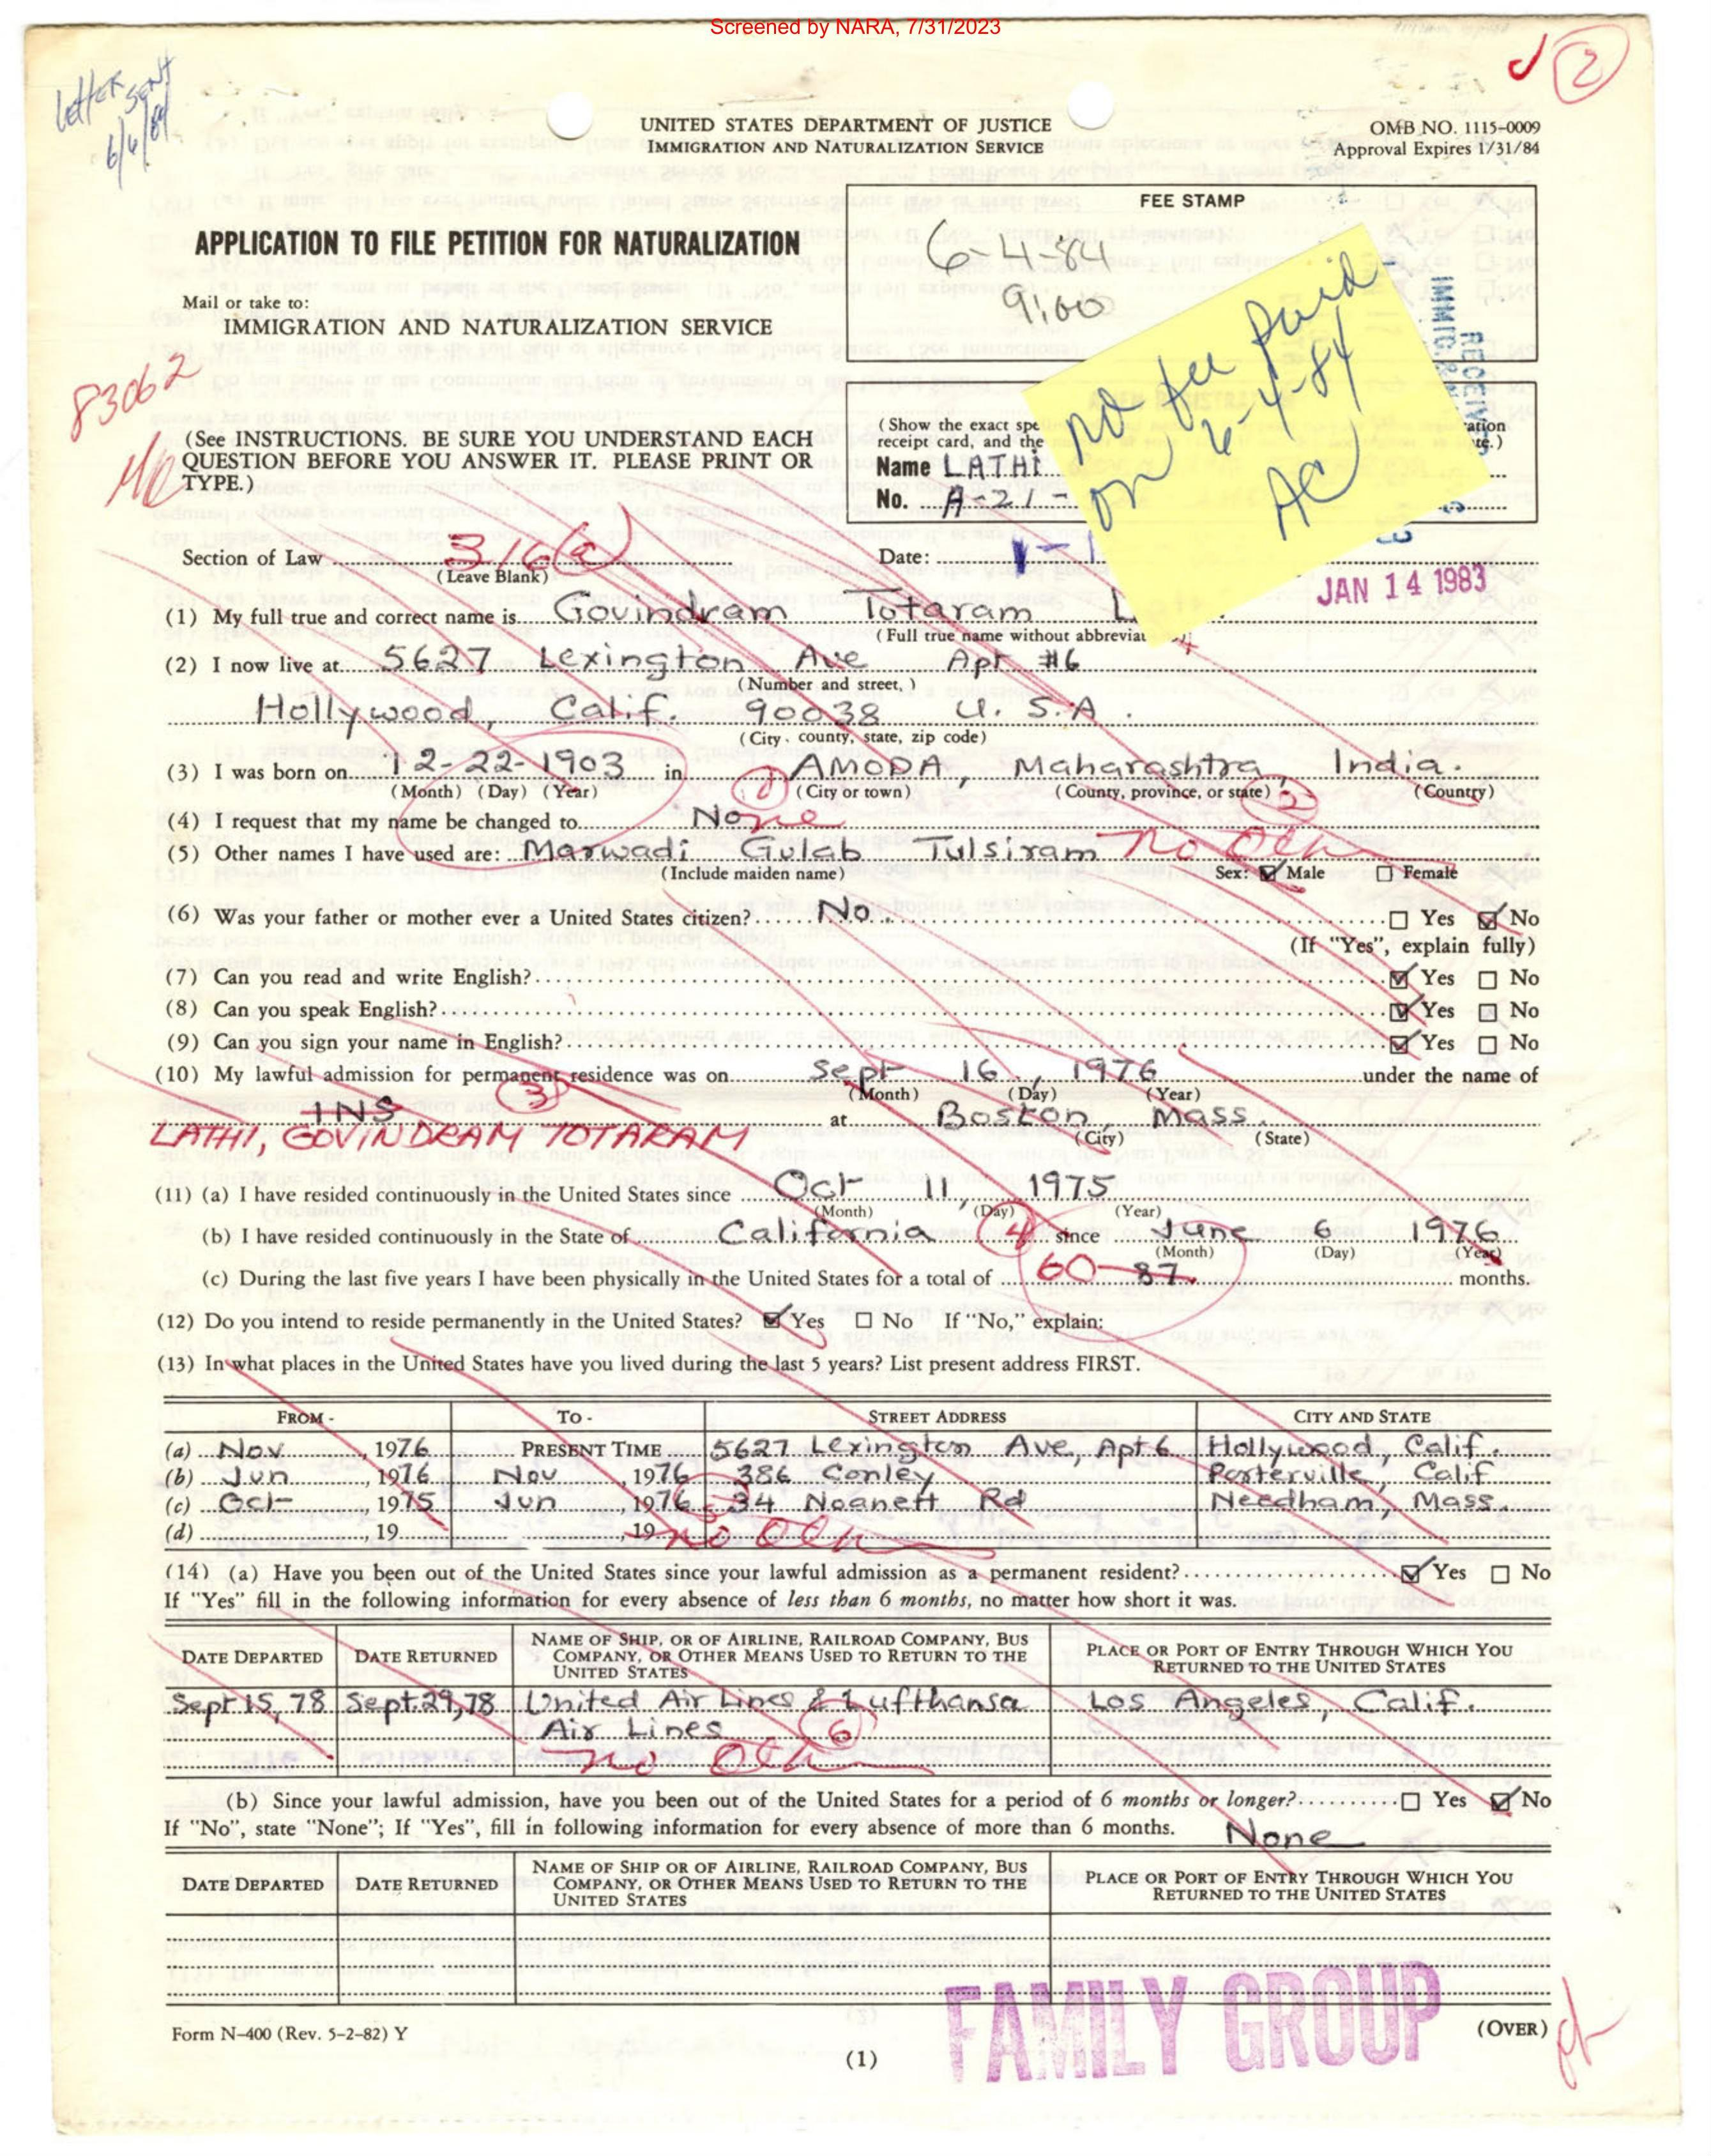 Screened by NARA, 7/31/2023
Letter sent
6/6/84
2
UNITED STATES DEPARTMENT OF JUSTICE
IMMIGRATION AND NATURALIZATION SERVICE
OMB NO. 1115-0009
Approval Expires 1/31/84
FEE STAMP
6-4-84
9:00
APPLICATION TO FILE PETITION FOR NATURALIZATION
Mail or take to:
IMMIGRATION AND NATURALIZATION SERVICE
83062
no fee paid
on 6-4-84
AC
RECEIVED
(See INSTRUCTIONS. BE SURE YOU UNDERSTAND EACH
QUESTION BEFORE YOU ANSWER IT. PLEASE PRINT OR
TYPE.)
(Show the exact spe
receipt card, and the
Name LATHI
No. A-21-
Section of Law 316(a)
(Leave Blank)
Date:
JAN 14 1983
(1) My full true and correct name is Govindram Totaram L
(Full true name without abbreviat
(2) I now live at 5627 Lexington Ave Apt #6
(Number and street, )
Hollywood, Calif. 90038 U.S.A.
(City, county, state, zip code)
(3) I was born on 12-22-1903 in 1 AMODA, Maharashtra, India.
(Month) (Day) (Year) (City or town) (County, province, or state) 2 (Country)
(4) I request that my name be changed to None
(5) Other names I have used are: Marwadi Gulab Tulsiram No Oth
(Include maiden name) Sex: Male Female
(6) Was your father or mother ever a United States citizen? No. Yes No
(If "Yes", explain fully)
(7) Can you read and write English? Yes No
(8) Can you speak English? Yes No
(9) Can you sign your name in English? Yes No
(10) My lawful admission for permanent residence was on Sept 16, 1976 under the name of
3 (Month) (Day) (Year)
INS at Boston, Mass.
LATHI, GOVINDRAM TOTARAM (City) (State)
(11) (a) I have resided continuously in the United States since Oct 11, 1975
(Month) (Day) (Year)
(b) I have resided continuously in the State of California 4 since June 6 1976
(Month) (Day) (Year)
(c) During the last five years I have been physically in the United States for a total of 60 87 months.
(12) Do you intend to reside permanently in the United States? Yes No If "No," explain:
(13) In what places in the United States have you lived during the last 5 years? List present address FIRST.
FROM - TO - STREET ADDRESS CITY AND STATE
(a) Nov, 1976 PRESENT TIME 5627 Lexington Ave, Apt 6 Hollywood, Calif.
(b) Jun, 1976 Nov, 1976 386 Conley Porterville, Calif
(c) Oct, 1975 Jun, 1976 34 Noanett Rd Needham, Mass.
(d) , 19 , 19 no Oth
(14) (a) Have you been out of the United States since your lawful admission as a permanent resident? Yes No
If "Yes" fill in the following information for every absence of less than 6 months, no matter how short it was.
DATE DEPARTED DATE RETURNED NAME OF SHIP, OR OF AIRLINE, RAILROAD COMPANY, BUS COMPANY, OR OTHER MEANS USED TO RETURN TO THE UNITED STATES PLACE OR PORT OF ENTRY THROUGH WHICH YOU RETURNED TO THE UNITED STATES
Sept 15, 78 Sept. 29, 78 United Air Lines & Lufthansa Los Angeles, Calif.
Air Lines 6
no Oth
(b) Since your lawful admission, have you been out of the United States for a period of 6 months or longer? Yes No
If "No", state "None"; If "Yes", fill in following information for every absence of more than 6 months. None
DATE DEPARTED DATE RETURNED NAME OF SHIP OR OF AIRLINE, RAILROAD COMPANY, BUS COMPANY, OR OTHER MEANS USED TO RETURN TO THE UNITED STATES PLACE OR PORT OF ENTRY THROUGH WHICH YOU RETURNED TO THE UNITED STATES
FAMILY GROUP
Form N-400 (Rev. 5-2-82) Y
(OVER)
(1)